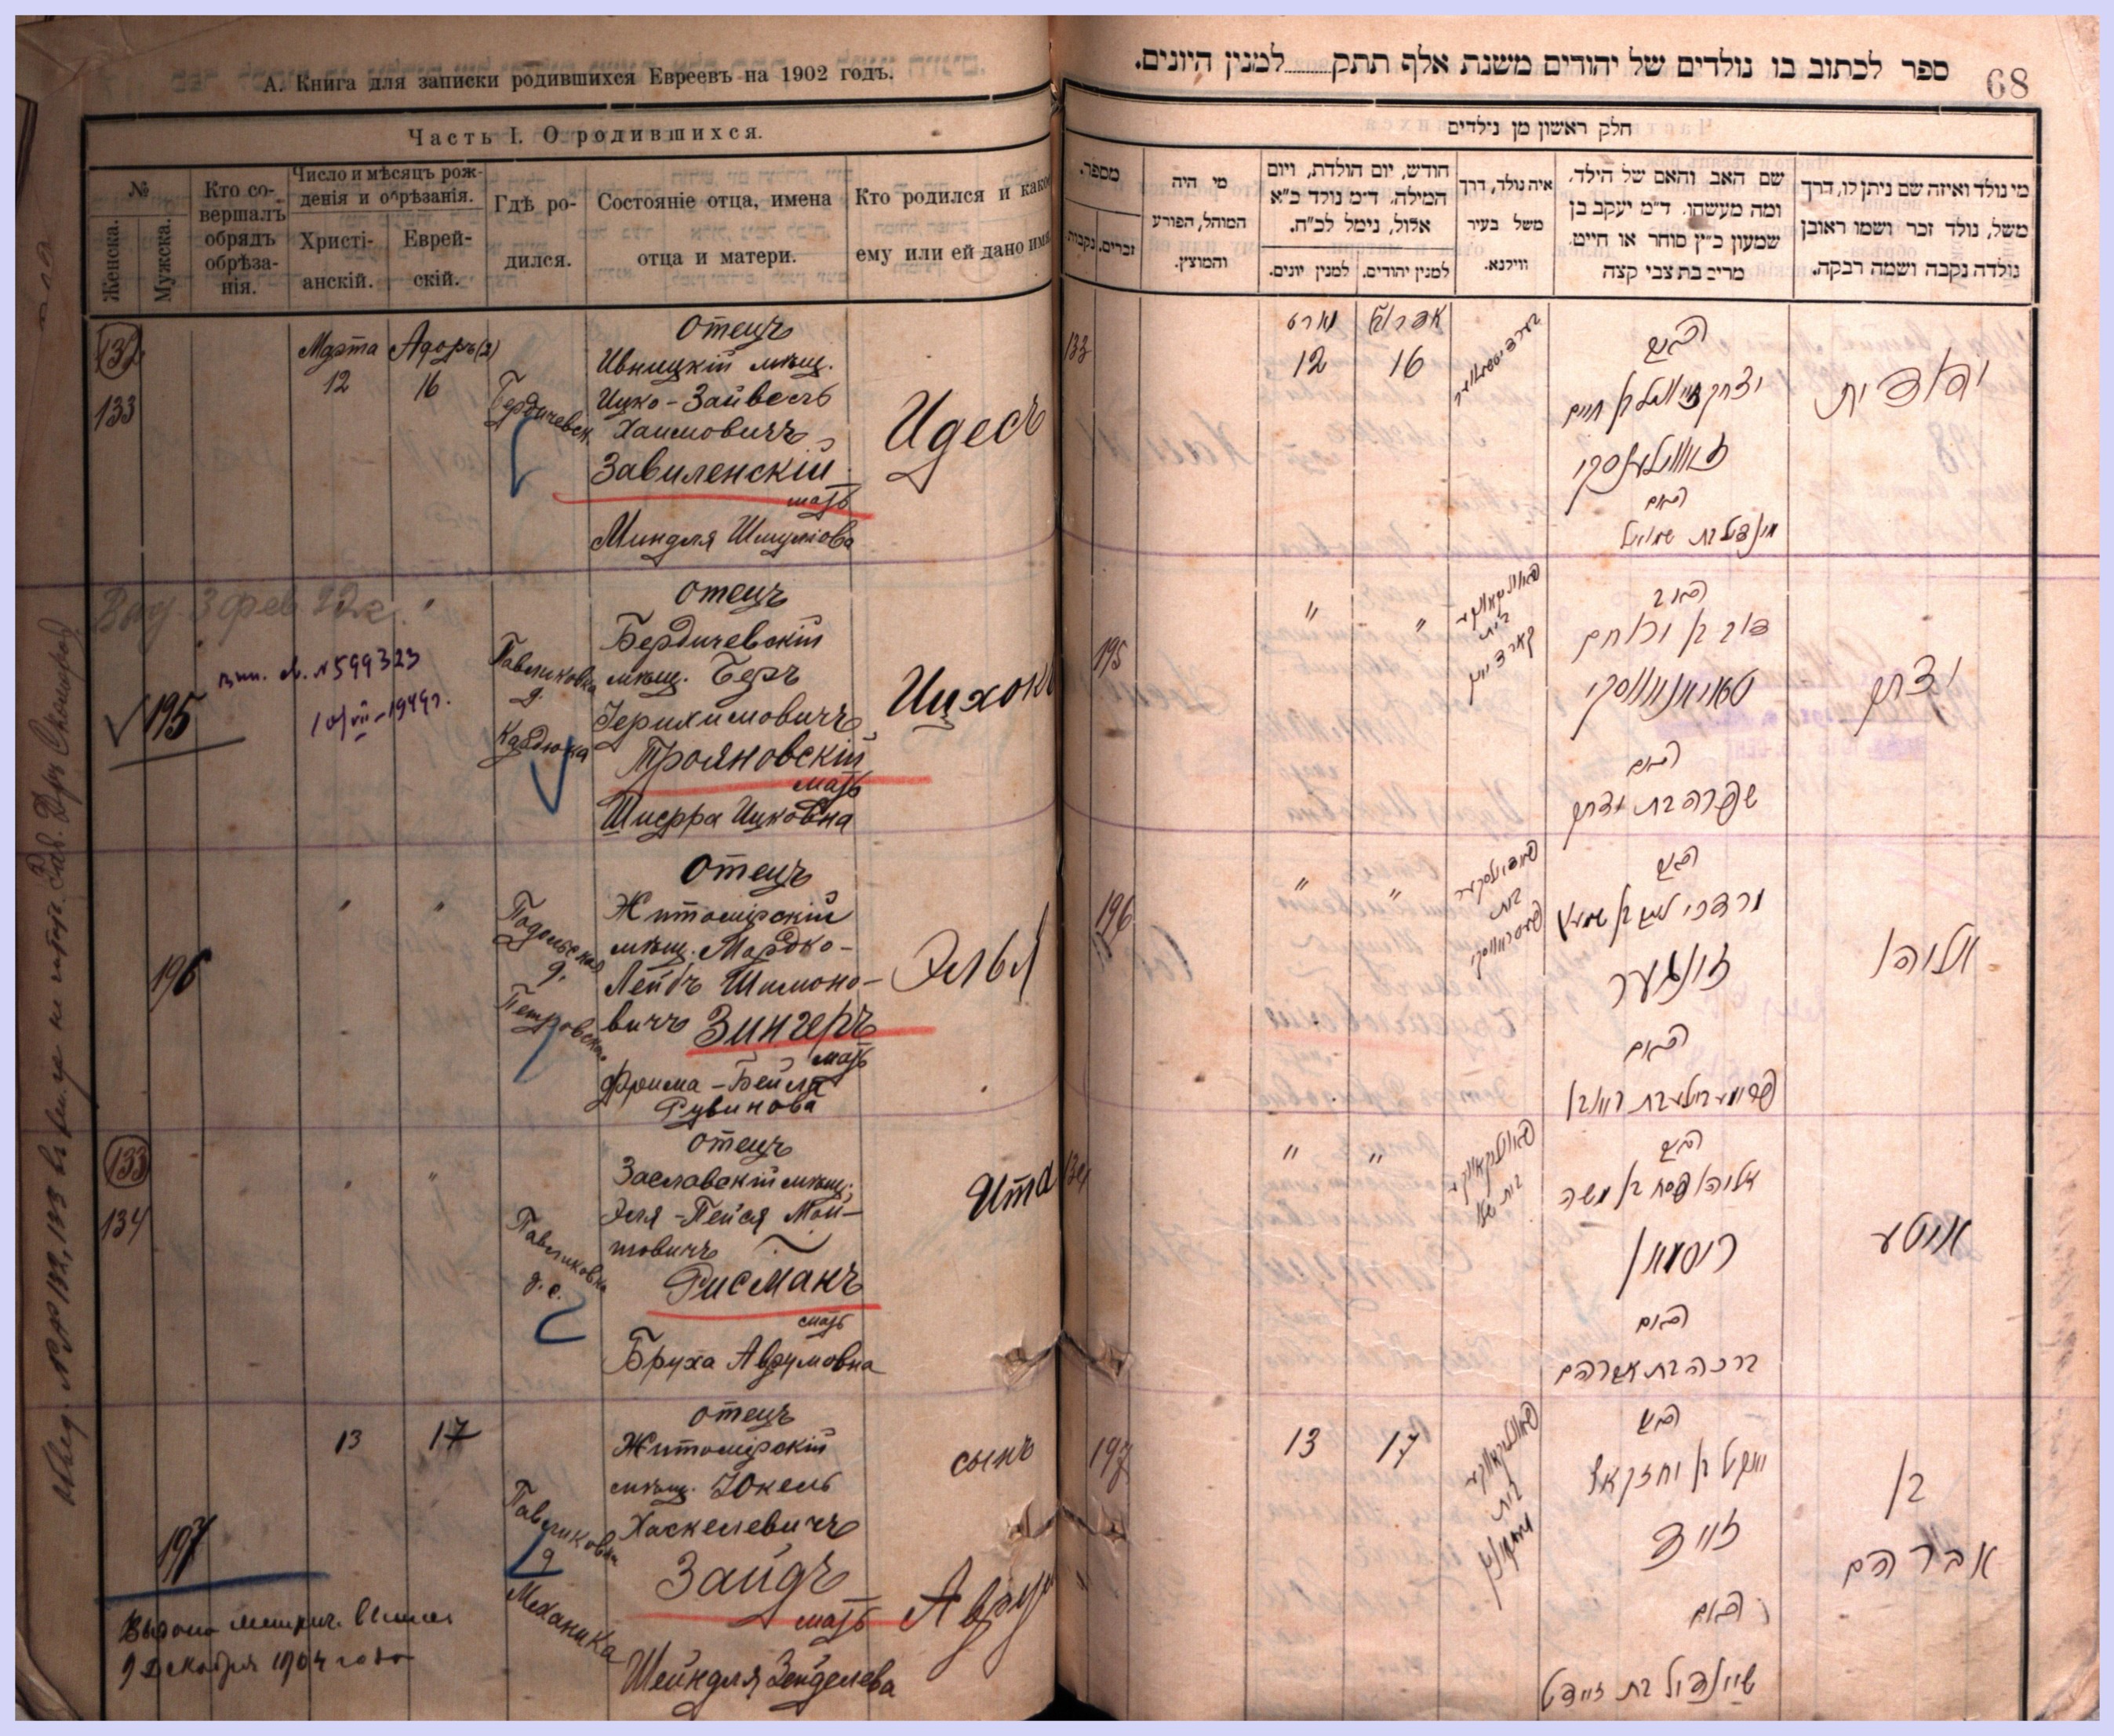 А. Книга для записки родившихся Евреевъ на 1902 годъ.
Часть I. О родившихся.
№
Женска.
Мужска.
Кто со-
вершалъ
обрядъ
обрѣза-
нія.
Число и мѣсяцъ рож-
денія и обрѣзанія.
Христі-
анскій.
Еврей-
скій.
Гдѣ ро-
дился.
Состояніе отца, имена
отца и матери.
Кто родился и како
ему или ей дано имя
132
133
Марта
12
Адоръ (2)
16
Бердичевск.
Отецъ
Ивницкій мѣщ.
Ицко-Зайвель
Хаимовичъ
Завиленскій
мать
Миндля Шмулiова
Идесъ
Выд. 3 фев 22г.
195
вып. св. № 599323
10/VII-1949г.
Павликовка
д.
Отецъ
Бердичевскій
мѣщ. Беръ
Іерихимовичъ
Трояновскій
мать
Шифра Ицковна
Ицхокъ
196
Подольская
д.
Отецъ
Житомірскій
мѣщ. Мордко-
Лейбъ Шимоно-
вичъ Зингеръ
мать
Фрима-Бейла
Рувинова
Элья
133
134
Павликовка
д. с.
Отецъ
Заславскій мѣщ.
Эля-Пейся Мош-
ковичъ
Рисманъ
мать
Бруха Аврумовна
Ита
13
17
197
Павликовка
д
Механика
Отецъ
Житомірскій
мѣщ. Юкель
Хаскелевичъ
Зайдъ
мать
Шейндля Зейделева
сынъ
Аврум
Выдана метрич. выпись
9 декабря 1904 года
ספר לכתוב בו נולדים של יהודים משנת אלף תתק......למנין היונים.
68
חלק ראשון מן נילדים
מספר.
זכרים.
נקבות
מי היה
המוהל, הפורע
והמוצץ.
חודש, יום הולדת, ויום
המילה. ד״מ נולד כ״א
אלול, נימל לכ״ח.
למנין יהודים.
למנין יונים.
איה נולד, דרך
משל בעיר
ווילנא.
שם האב והאם של הילד,
ומה מעשהו. ד״מ יעקב בן
שמעון כ״ץ סוחר או חייט.
מרים בת צבי קצה
מי נולד ואיזה שם ניתן לו, דרך
משל, נולד זכר ושמו ראובן
נולדה נקבה ושמה רבקה.
133
מארט
12
16
האב
זאווילענסקי
האם
מינדיל בת שמואל
יהודית
195
״
״
האב
דוב בן ירוחם
טראיאנאווסקי
האם
שפרה בת יצחק
יצחק
196
״
״
האב
מרדכי ליב בן שמעון
זינגער
האם
פרומע ביילע בת ראובן
אליהו
134
״
״
האב
אליהו פסח בן משה
ריסמאן
האם
ברכה בת אברהם
איטע
197
13
17
האב
יוקל בן יחזקאל
זייד
האם
שיינדיל בת זיידל
בן
אברהם